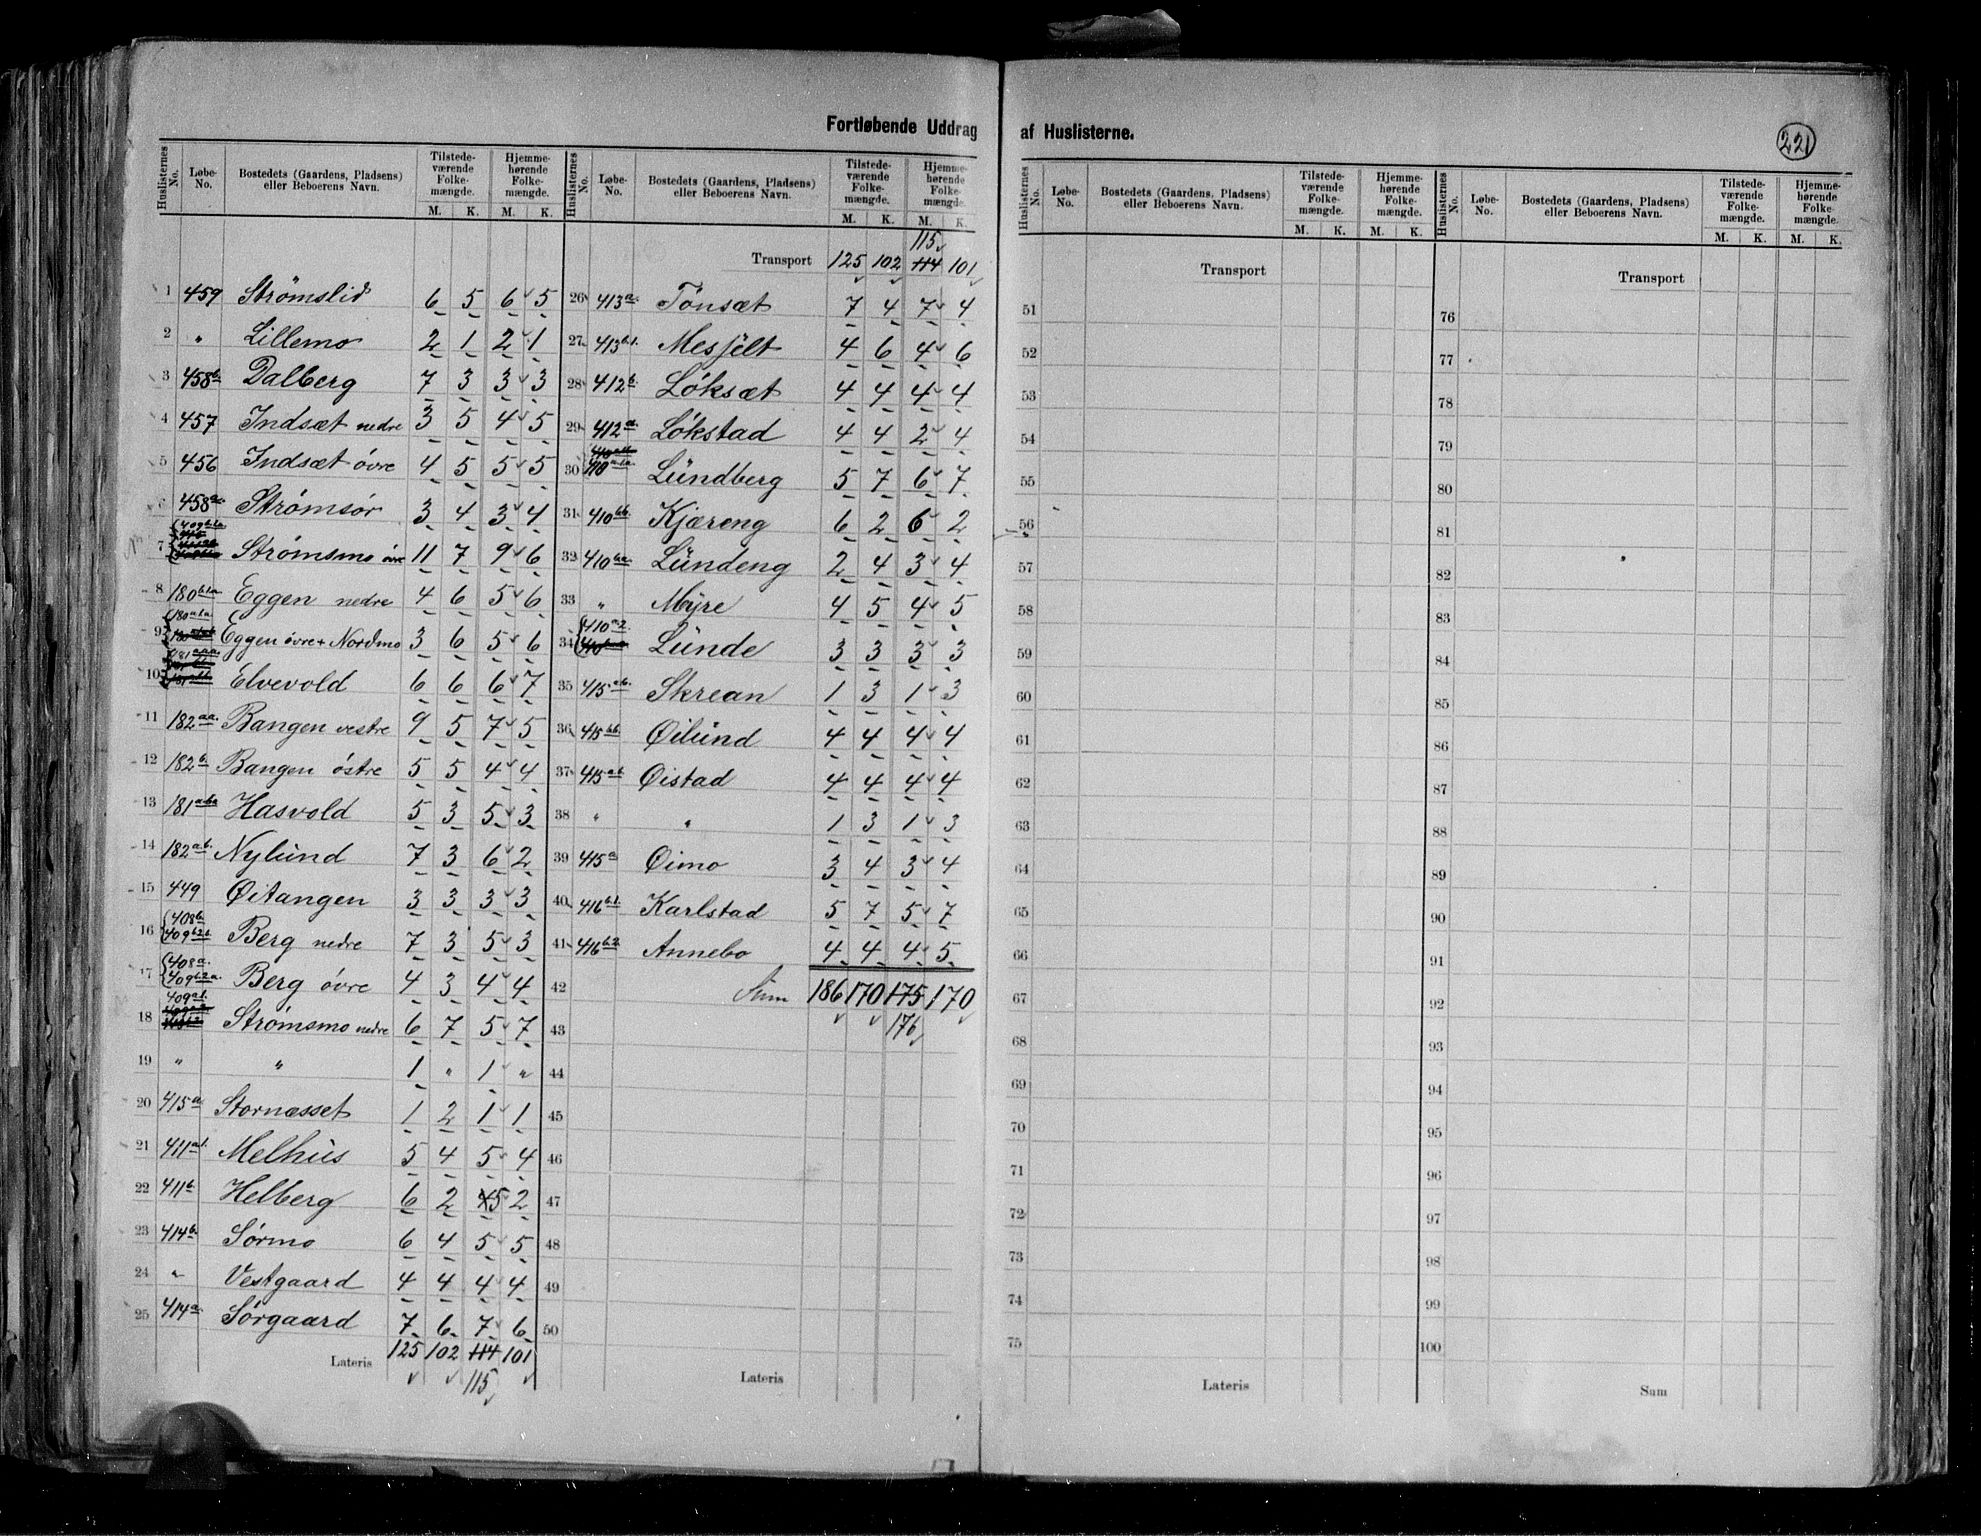 Fortløbende Uddrag af Huslisterne.
221
Huslisternes No. Løbe-No. Bostedets (Gaardens, Pladsens) eller Beboerens Navn. Tilstedeværende Folkemængde. M. K. Hjemmehørende Folkemængde. M. K.
1 459 Strømslid 6 5 6 5
2 " Lillemo 2 1 2 1
3 458b. Dalberg 7 3 3 3
4 457 Indsæt nedre 3 5 4 5
5 456 Indsæt övre 4 5 5 5
6 458a. Strømsör 3 4 3 4
7 409b.1a Strømsmo övre 11 7 9 6
8 180b1a Eggen nedre 4 6 5 6
9 180a1a Eggen övre + Nordmo 3 6 5 6
10 181aaa Elvevold 6 6 6 7
11 182aa. Bangen vestre 9 5 7 5
12 182b. Bangen östre 5 5 4 4
13 181aba Hasvold 5 3 5 3
14 182ab. Nylund 7 3 6 2
15 449 Øitangen 3 3 3 3
16 408b. 409b2b. Berg nedre 7 3 5 3
17 408a. 409b.2a. Berg övre 4 3 4 4
18 409a1. Strømsmo nedre 6 7 5 7
19 " " 1 " 1 "
20 415a. Stornæsset 1 2 1 1
21 411a1. Melhus 5 4 5 4
22 411b. Helberg 6 2 5 2
23 414b. Sörmo 6 4 5 5
24 " Vestgaard 4 4 4 4
25 414a. Sörgaard 7 6 7 6
Lateris 125 102 114 101
115
Huslisternes No. Løbe-No. Bostedets (Gaardens, Pladsens) eller Beboerens Navn. Tilstedeværende Folkemængde. M. K. Hjemmehørende Folkemængde. M. K.
115
Transport 125 102 114 101
26 413a. Tönsæt 7 4 7 4
27 413b.1. Mesjelt 4 6 4 6
28 412b. Löksæt 4 4 4 4
29 412a. Lökstad 4 4 2 4
30 410a1a. Lundberg 5 7 6 7
31 410bb. Kjæreng 6 2 6 2
32 410ba. Lundeng 2 4 3 4
33 " Myre 4 5 4 5
34 410a2. Lunde 3 3 3 3
35 415ab. Skrean 1 3 1 3
36 415bb. Øilund 4 4 4 4
37 415ab. Øistad 4 4 4 4
38 " " 1 3 1 3
39 415a Øimo 3 4 3 4
40 416b.1. Karlstad 5 7 5 7
41 416b.2. Annebo 4 4 4 5
42 Sum 186 170 175 170
43 176
44
45
46
47
48
49
50
Lateris
Huslisternes No. Løbe-No. Bostedets (Gaardens, Pladsens) eller Beboerens Navn. Tilstedeværende Folkemængde. M. K. Hjemmehørende Folkemængde. M. K.
Transport
51
52
53
54
55
56
57
58
59
60
61
62
63
64
65
66
67
68
69
70
71
72
73
74
75
Lateris
Huslisternes No. Løbe-No. Bostedets (Gaardens, Pladsens) eller Beboerens Navn. Tilstedeværende Folkemængde. M. K. Hjemmehørende Folkemængde. M. K.
Transport
76
77
78
79
80
81
82
83
84
85
86
87
88
89
90
91
92
93
94
95
96
97
98
99
100
Sum